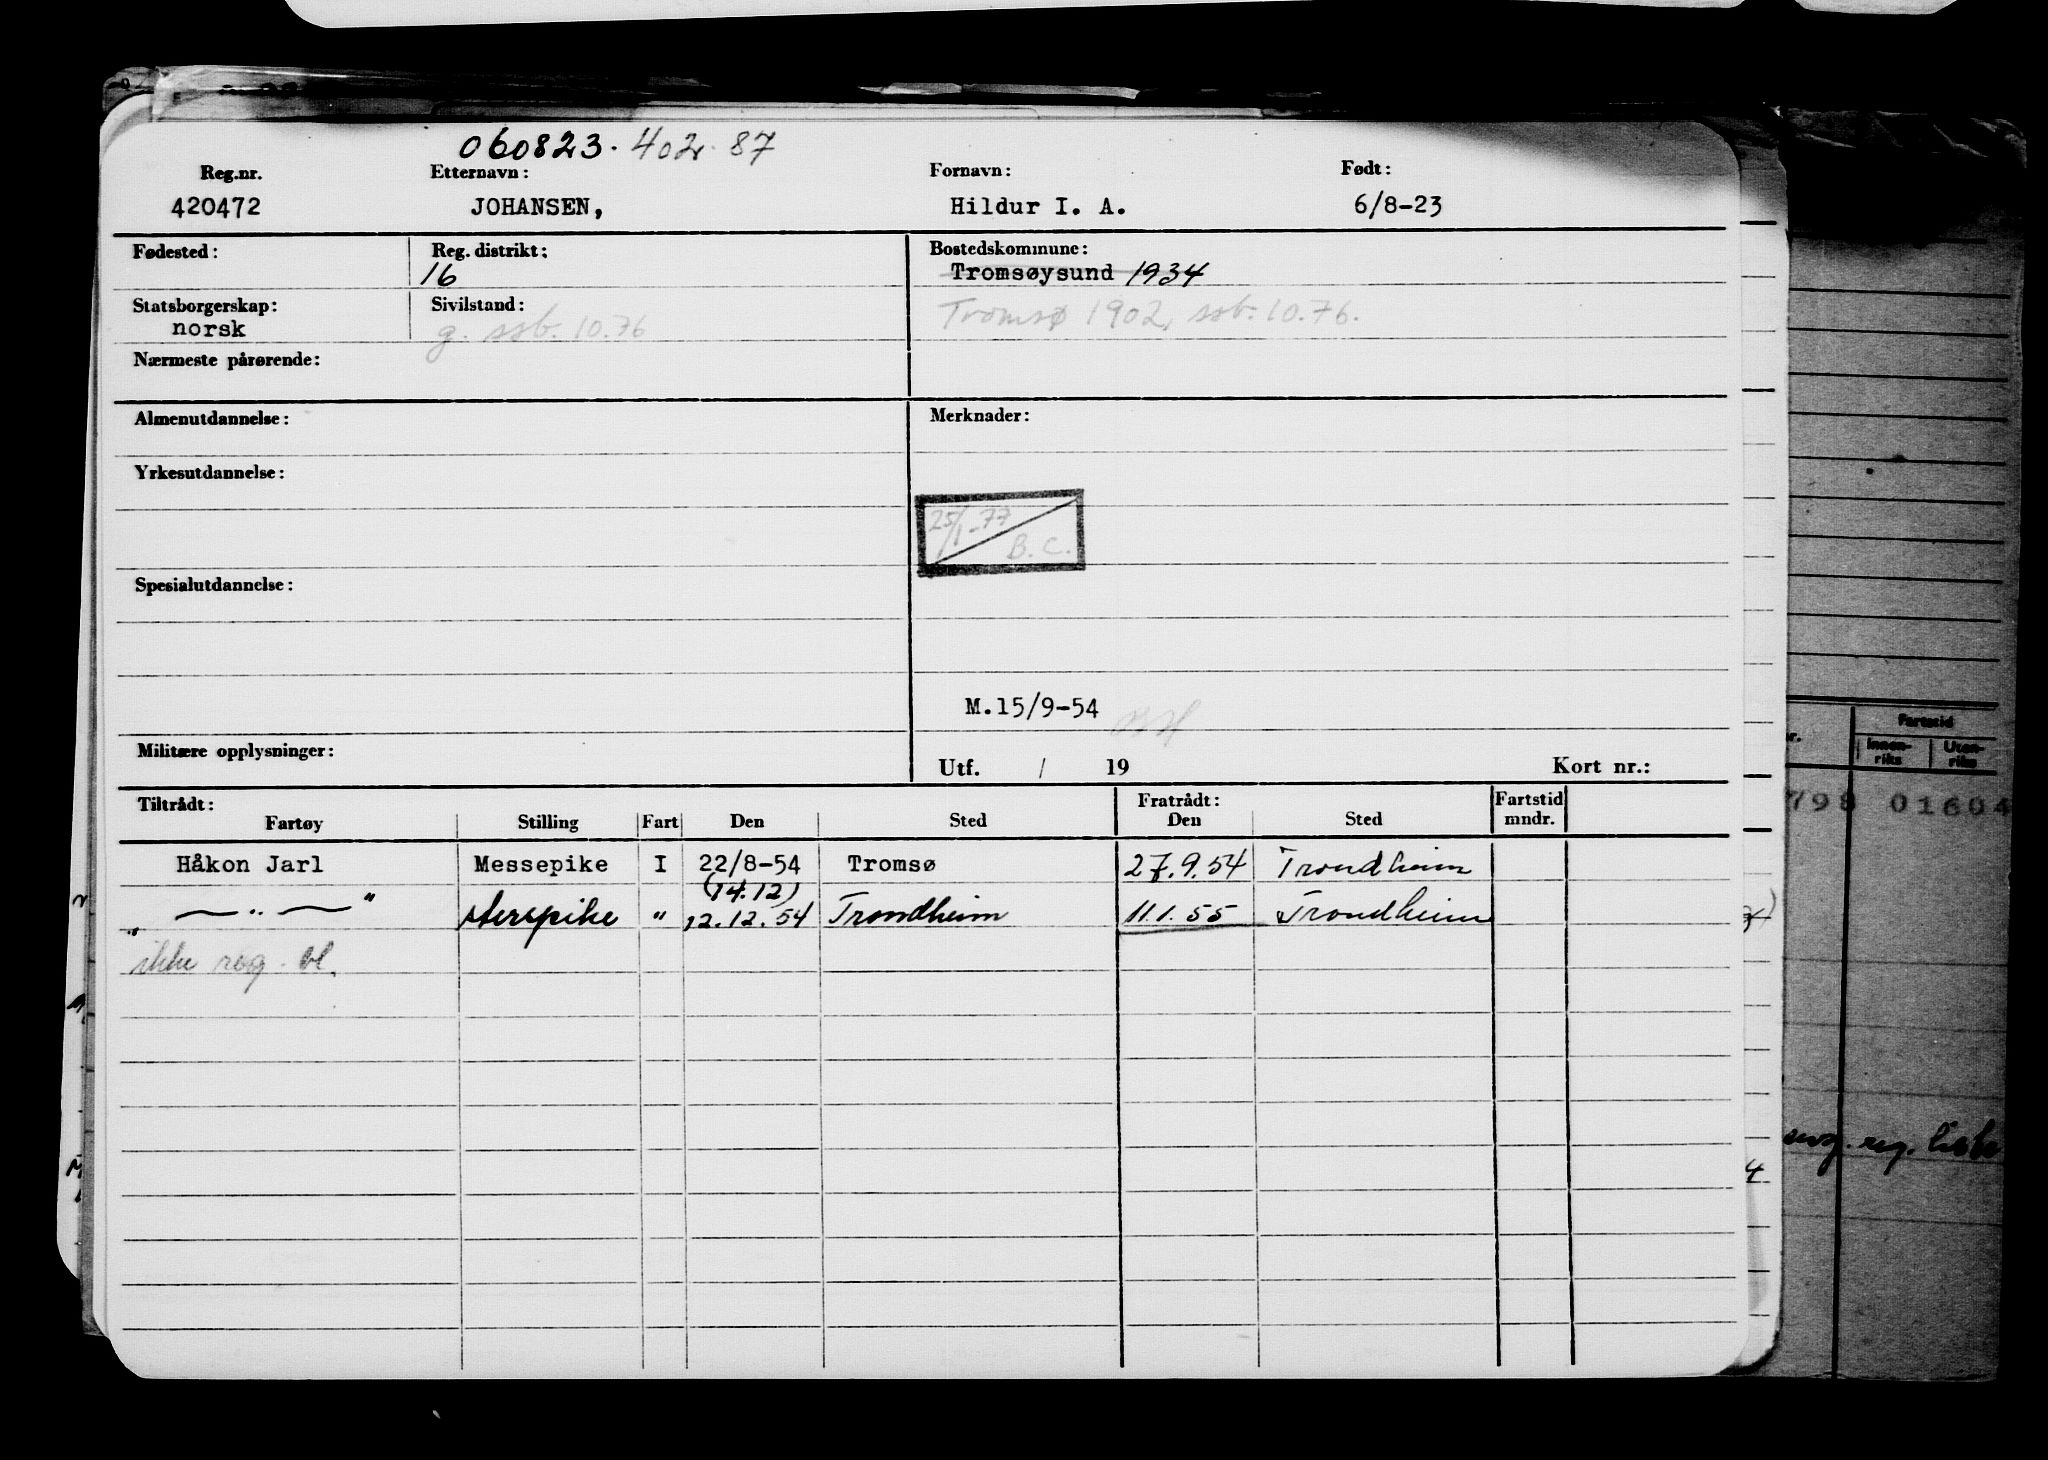 060823. 402 87
Reg.nr. Etternavn: Fornavn: Født:
420472 JOHANSEN, Hildur I. A. 6/8-23
Fødested: Reg. distrikt: Bostedskommune:
16 Tromsøysund 1934
Statsborgerskap: Sivilstand:
norsk g. ssb. 10.76 Tromsø 1902, ssb. 10.76.
Nærmeste pårørende:
Almenutdannelse: Merknader:
Yrkesutdannelse:
25/1-77
B. C.
Spesialutdannelse:
M.15/9-54
Militære opplysninger:
Utf. / 19 Kort nr.:
Tiltrådt: Fratrådt: Fartstid
Fartøy Stilling Fart Den Sted Den Sted mndr.
Håkon Jarl Messepike I 22/8-54 Tromsø 27.9.54 Trondheim
(14.12)
„ — „ — " " 12.12.54 Trondheim 11.1.55 Trondheim
ikke reg.
Fartstid
Innen-riks Uten-riks
798 01604
reg.